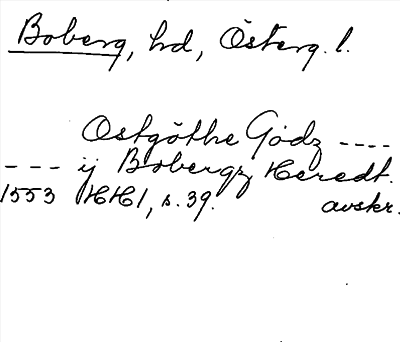 Boberg, hd, Österg. l.
Ostgöthe Godz ----
--- ij Bobergz Heredt.
1553 HH1, s. 39. avskr.